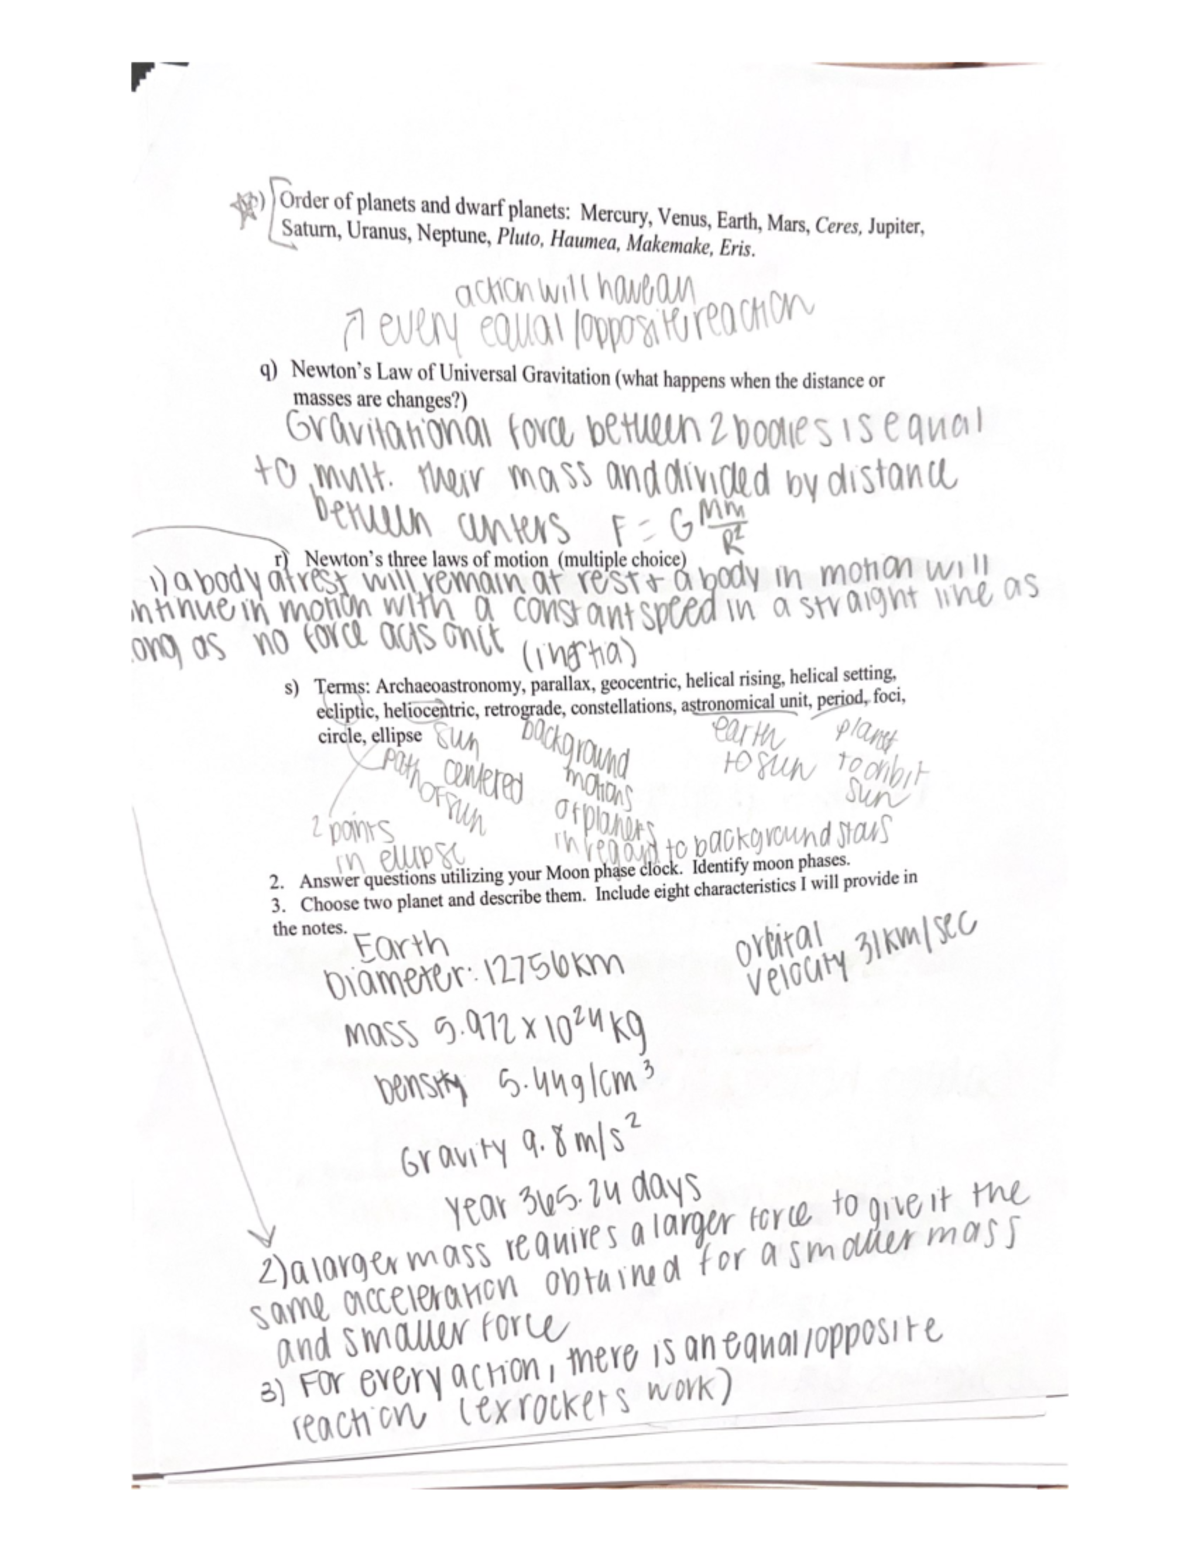 Order of planets and dwarf planets: Mercury, Venus, Earth, Mars, Ceres, Jupiter,
Saturn, Uranus, Neptune, Pluto, Haumea, Makemake, Eris.
action will have an
every equal/opposite reaction
q) Newton's Law of Universal Gravitation (what happens when the distance or
masses are changes?)
Gravitational force between 2 bodies is equal
to mult. their mass and divided by distance
between centers F = G Mm/R²
r) Newton's three laws of motion (multiple choice)
1) a body at rest will remain at rest + a body in motion will
ntinue in motion with a constant speed in a straight line as
ong as no force acts on it (inertia)
s) Terms: Archaeoastronomy, parallax, geocentric, helical rising, helical setting,
ecliptic, heliocentric, retrograde, constellations, astronomical unit, period, foci,
circle, ellipse
sun
centered
path
of sun
background
motions
of planets
in regard to background stars
earth
to sun
planet
to orbit
sun
2 points
in ellipse
2. Answer questions utilizing your Moon phase clock. Identify moon phases.
3. Choose two planet and describe them. Include eight characteristics I will provide in
the notes.
Earth
Diameter: 12756km
orbital
velocity 31km/sec
mass 5.972 x 10²⁴ kg
Density 5.44g/cm³
Gravity 9.8 m/s²
year 365.24 days
2) a larger mass requires a larger force to give it the
same acceleration obtained for a smaller mass
and smaller force
3) For every action, there is an equal/opposite
reaction (ex rockets work)